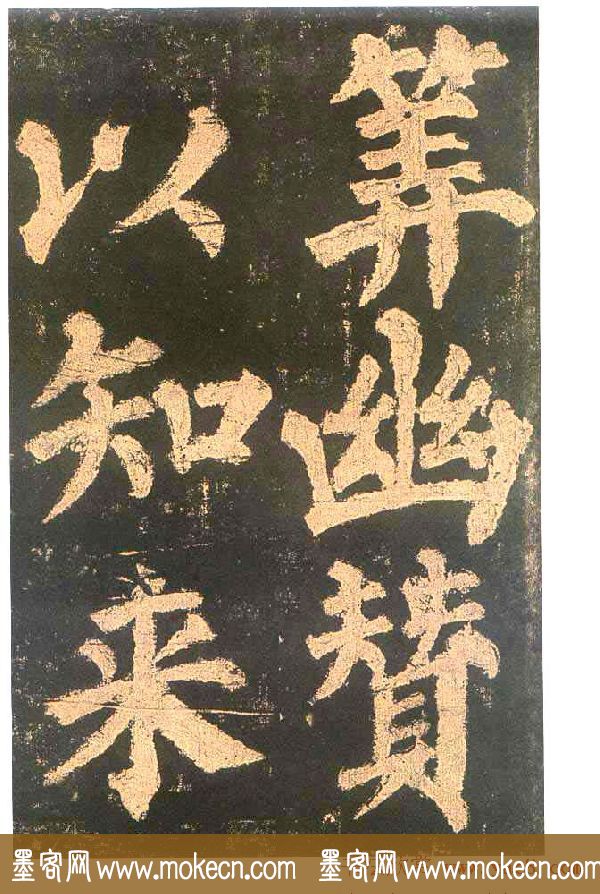 筭幽贊
以知来
墨客网 www.mokecn.com 墨客网 www.mokecn.com